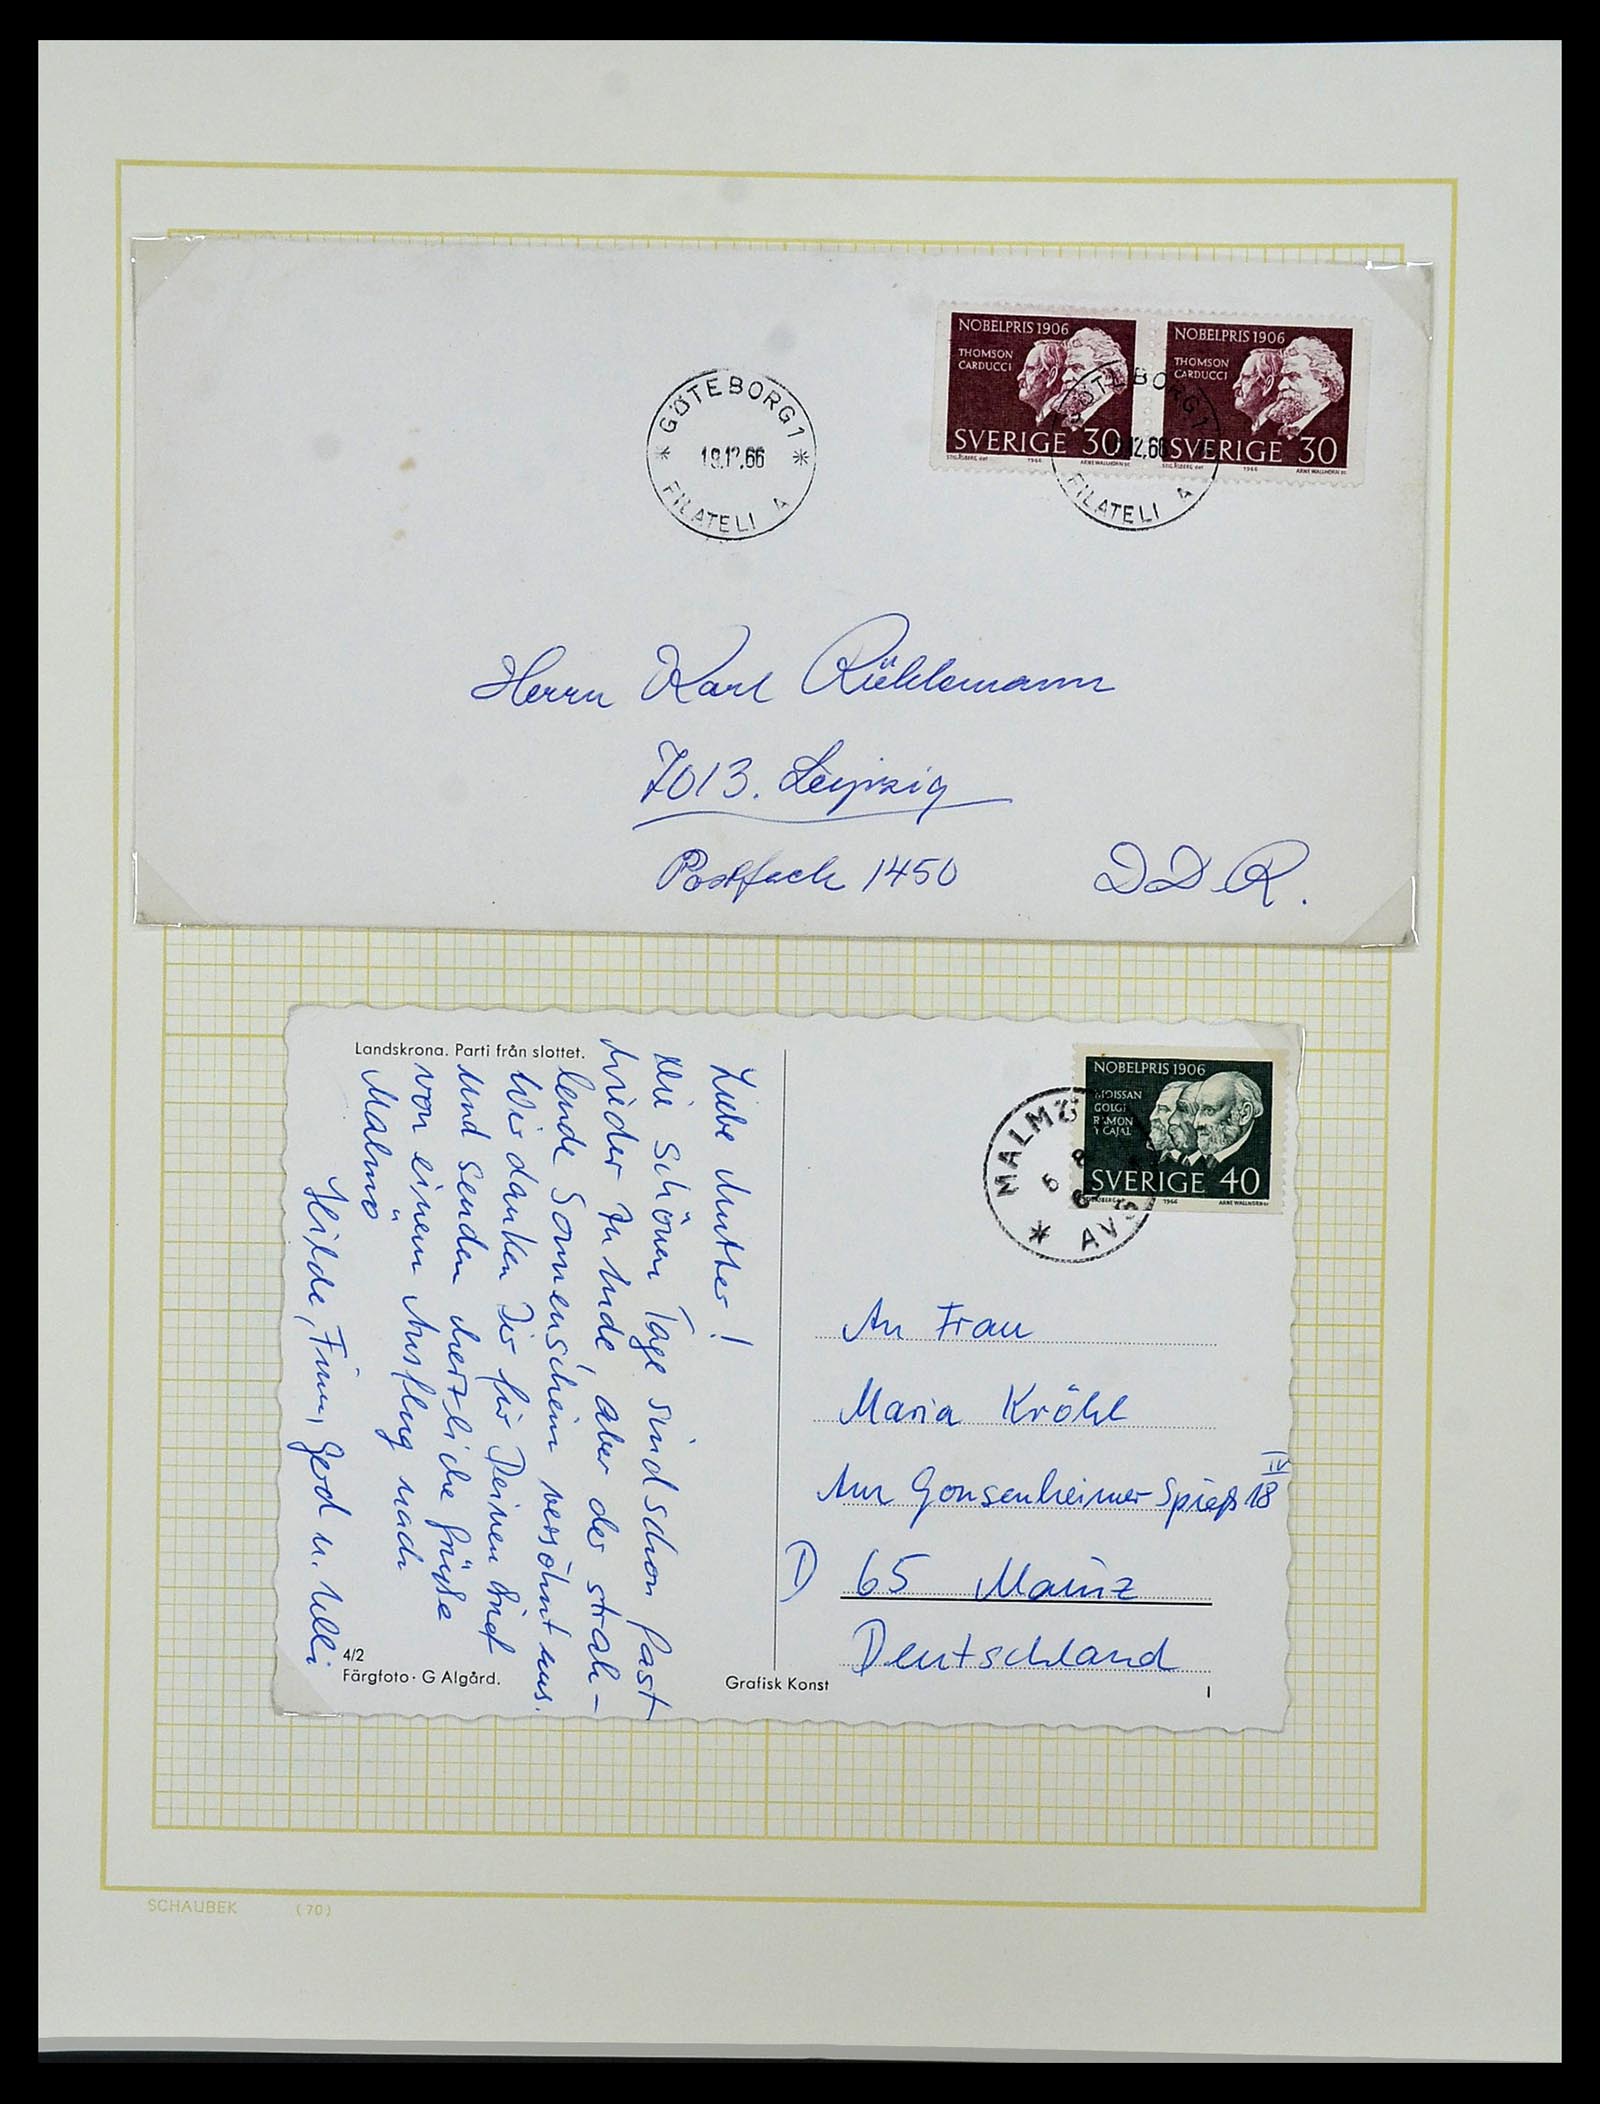 NOBELPRIS 1906
THOMSON
CARDUCCI
SVERIGE 30
STIG ÅSBERG del
1966
ARNE WALLHORN sc
NOBELPRIS 1906
THOMSON
CARDUCCI
SVERIGE 30
STIG ÅSBERG del
1966
ARNE WALLHORN sc
GÖTEBORG 1
19.12.66
FILATELI A
GÖTEBORG 1
12.66
FILATELI A
Herrn Karl Rühlemann
7013. Leipzig
Postfach 1450
DDR.
Landskrona. Parti från slottet.
Liebe Mutter!
Die schönen Tage sind schon fast
wieder zu Ende, aber der strah-
lende Sonnenschein versöhnt uns.
Wir danken Dir für Deinen Brief
und senden herzliche Grüße
von einem Ausflug nach
Malmö
Hilde, Finn, Gerd u. Ulli
4/2
Färgfoto · G Algård.
Grafisk Konst
NOBELPRIS 1906
MOISSAN
GOLGI
RAMON
Y CAJAL
SVERIGE 40
1966
ARNE WALLHORN sc
MALMÖ
AVG
An Frau
Maria Kröhl
Am Gonsenheimer Spieß 18 IV
D 65 Mainz
Deutschland
I
SCHAUBEK (70)